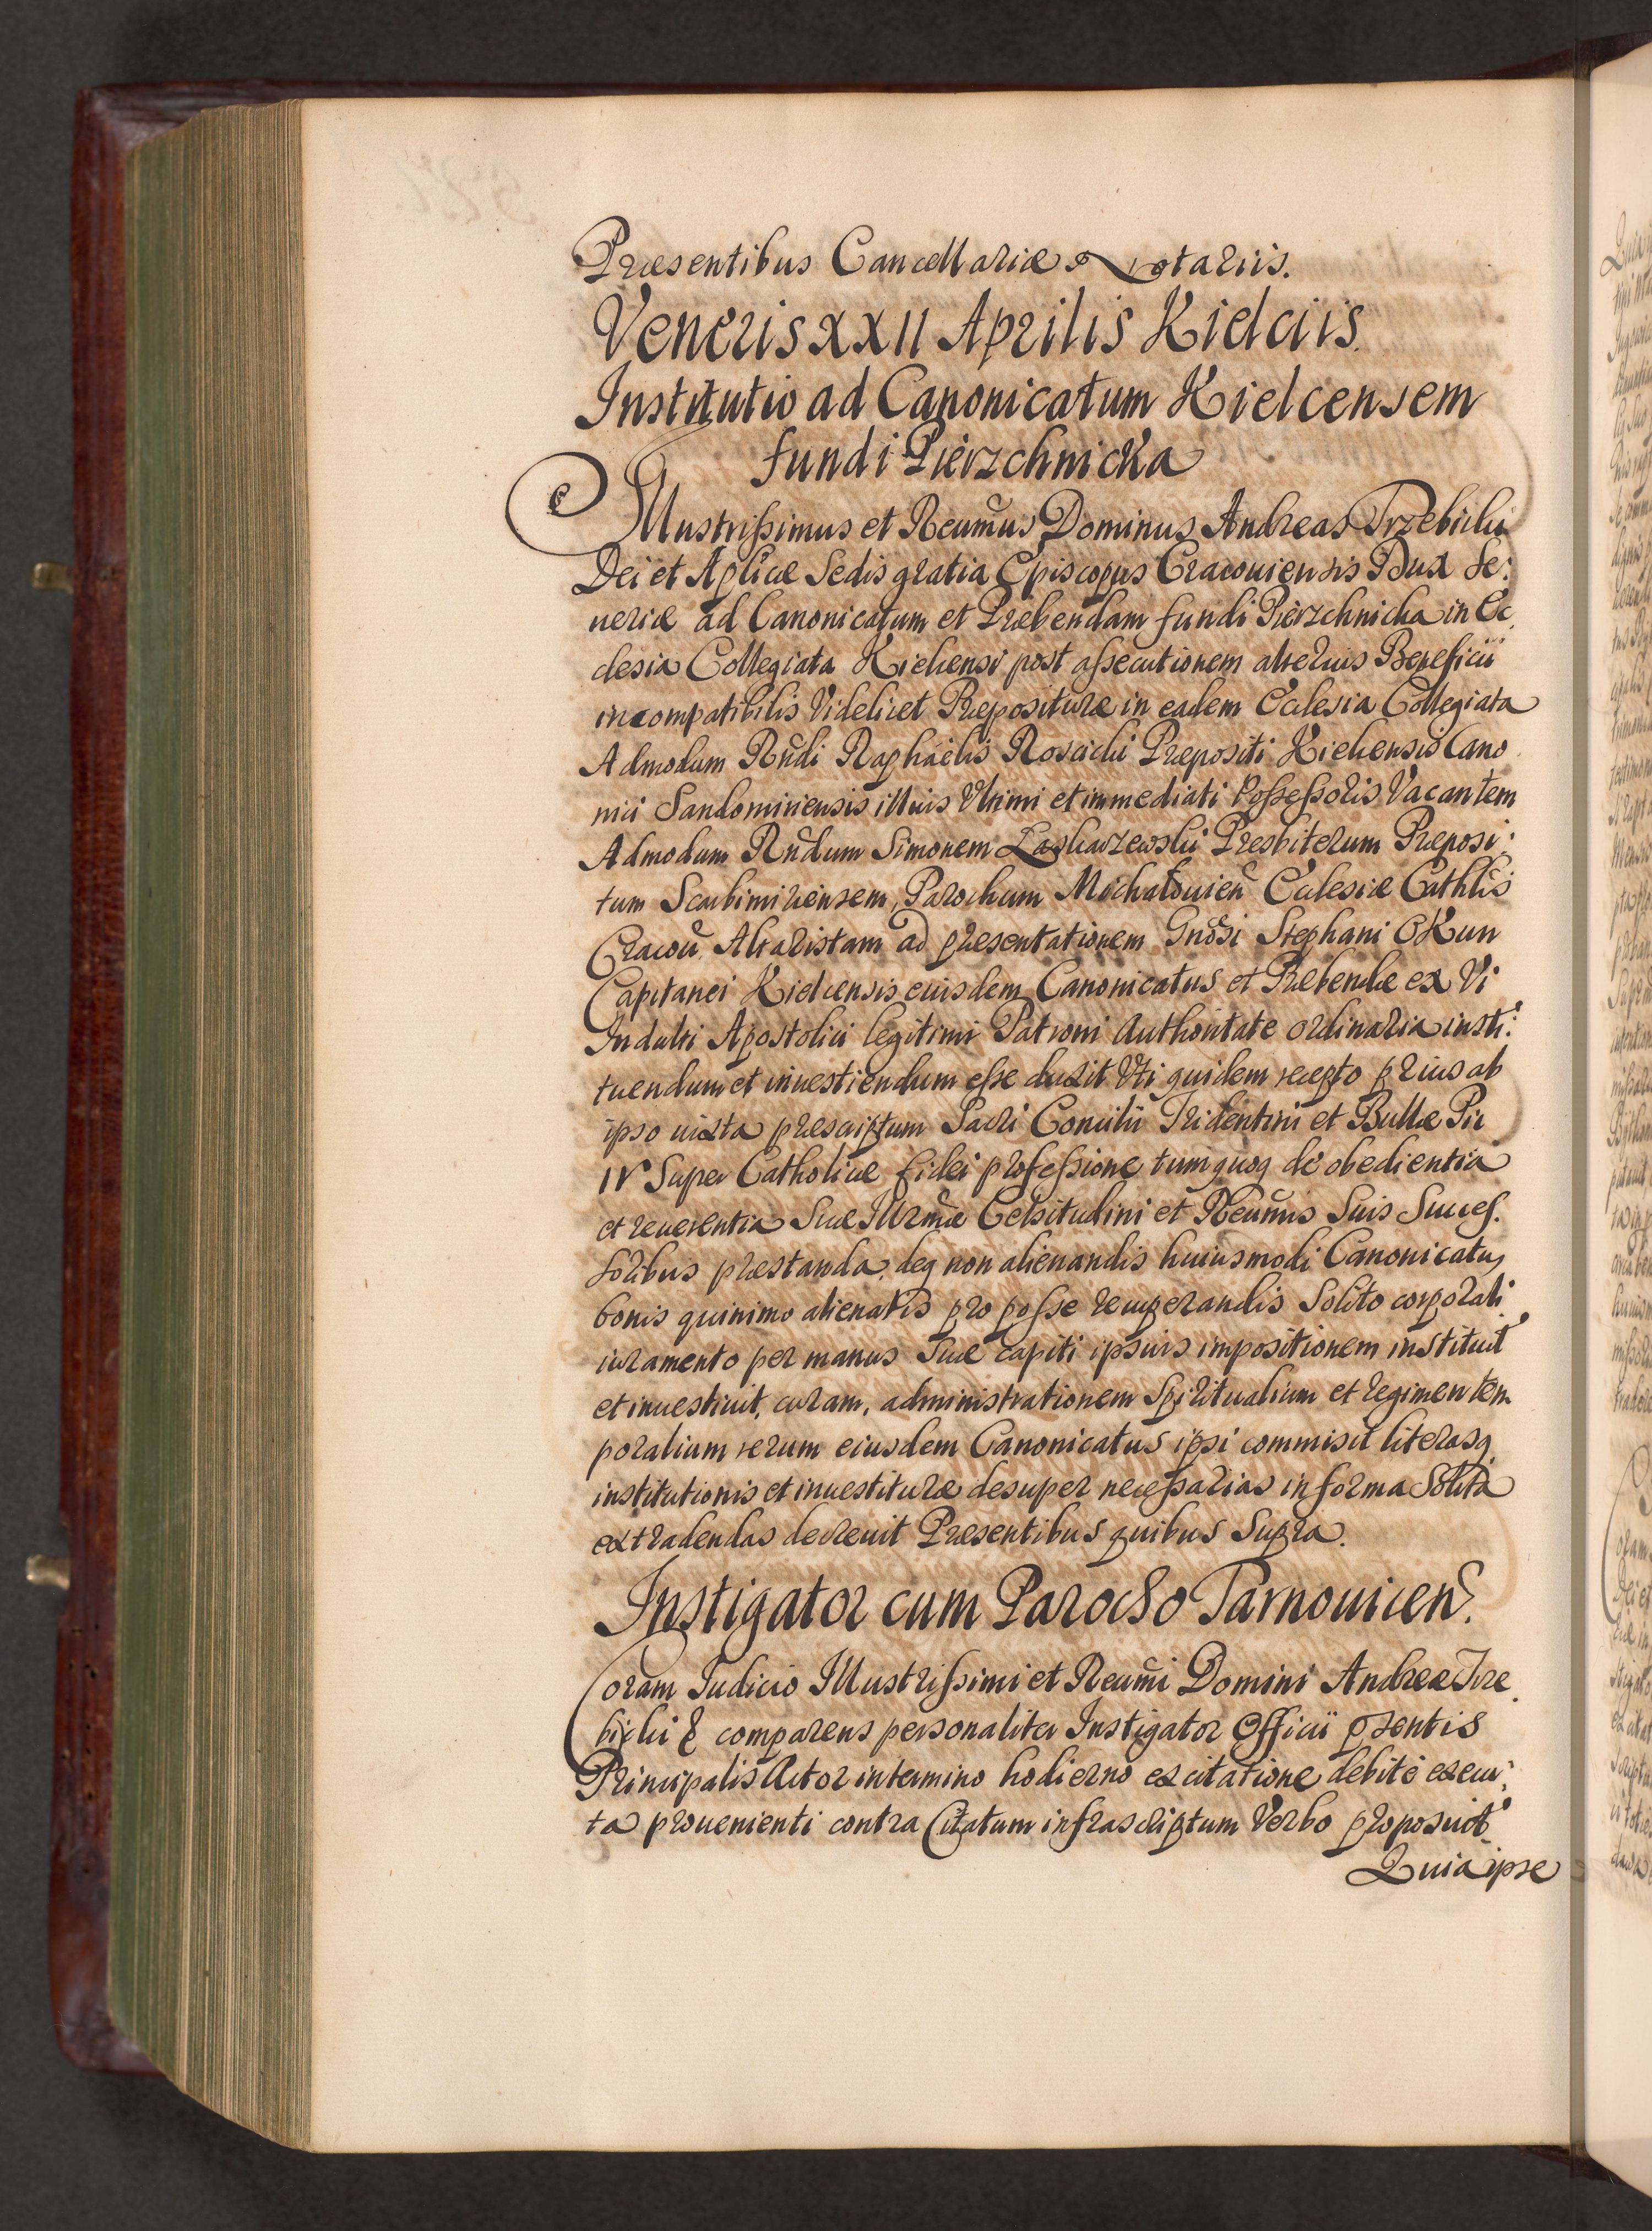 Præsentibus Cancellariæ Notariis.
Veneris XXII Aprilis Kielciis.
Institutio ad Canonicatum Kielcensem
fundi Pierzchnicka
Illustrißimus et Reum̃us Dominus Andreas Trzebicki
Dei et Apl̃icæ Sedis gratia Episcopus Cracouiensis Dux Se:
ueriæ ad Canonicatum et Præbendam fundi Pierzchnicka in Ec,
clesia Collegiata Kielcensi post aßecutionem alterius Beneficii
incompatibilis Videlicet Præpositure in eadem Ecclesia Collegiata
Admodum Rñdi Raphaelis Roscicki Præpositi Kielcensis Cano
nici Sandomiriensis illius Vltimi et immediati Poßeßoris Vacantem
Admodum Rñdum Simonem Laskarzewski Presbiterum Præposi:
tum Scarbimiriensem, Parochum Michalouien̄ Ecclesiæ Cathlis
Cracou Altaristam ad presentationem Gnõsi Stephani OKun
Capitanei Kielcensis eiusdem Canonicatus et Præbendæ ex Vi
Indulti Apostolici legitimi Patroni Authoritate ordinaria insti:
tuendum et inuestiendum eße duxit Vti quidem recepto prius ab
ipso iuxta præscriptum Sacri Concilii Tridentini et Bullæ Pii
IV Super Catholicæ fidei profeßione tum quoq de obedientia
et reuerentia Suæ Illr̃mæ Celsitudini et Reum̃is Suis Succes.
soribus præstanda, deq non alienandis huiusmodi Canonicatus
bonis quinimo alienatis pro poße recuperandis Solito corporali
iuramento per manus Suæ capiti ipsius impositionem instituit
et inuestiuit, curam, administrationem Spiritualium et regimen tem
poralium rerum eiusdem Canonicatus ipsi commisit literasq
institutionis et inuestituræ desuper neceßarias in forma Solita
extradendas decreuit Præsentibus quibus Supra.
Instigator cum Parocho Tarnouicen̄.
Coram Iudicio Illustrißimi et Reum̃i Domini Andreæ Trze
bicki & comparens personaliter Instigator Officii pñsentis
Principalis Actor in termino hodierno ex citatione debite execu:
ta prouenienti contra Citatum infrascriptum Verbo proposuit
Quia ipse